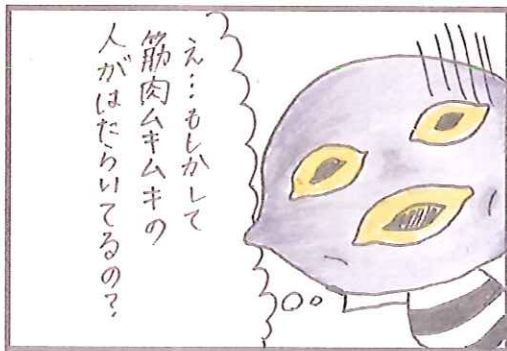 え…もしかして
筋肉ムキムキの
人がはたらいてるの?